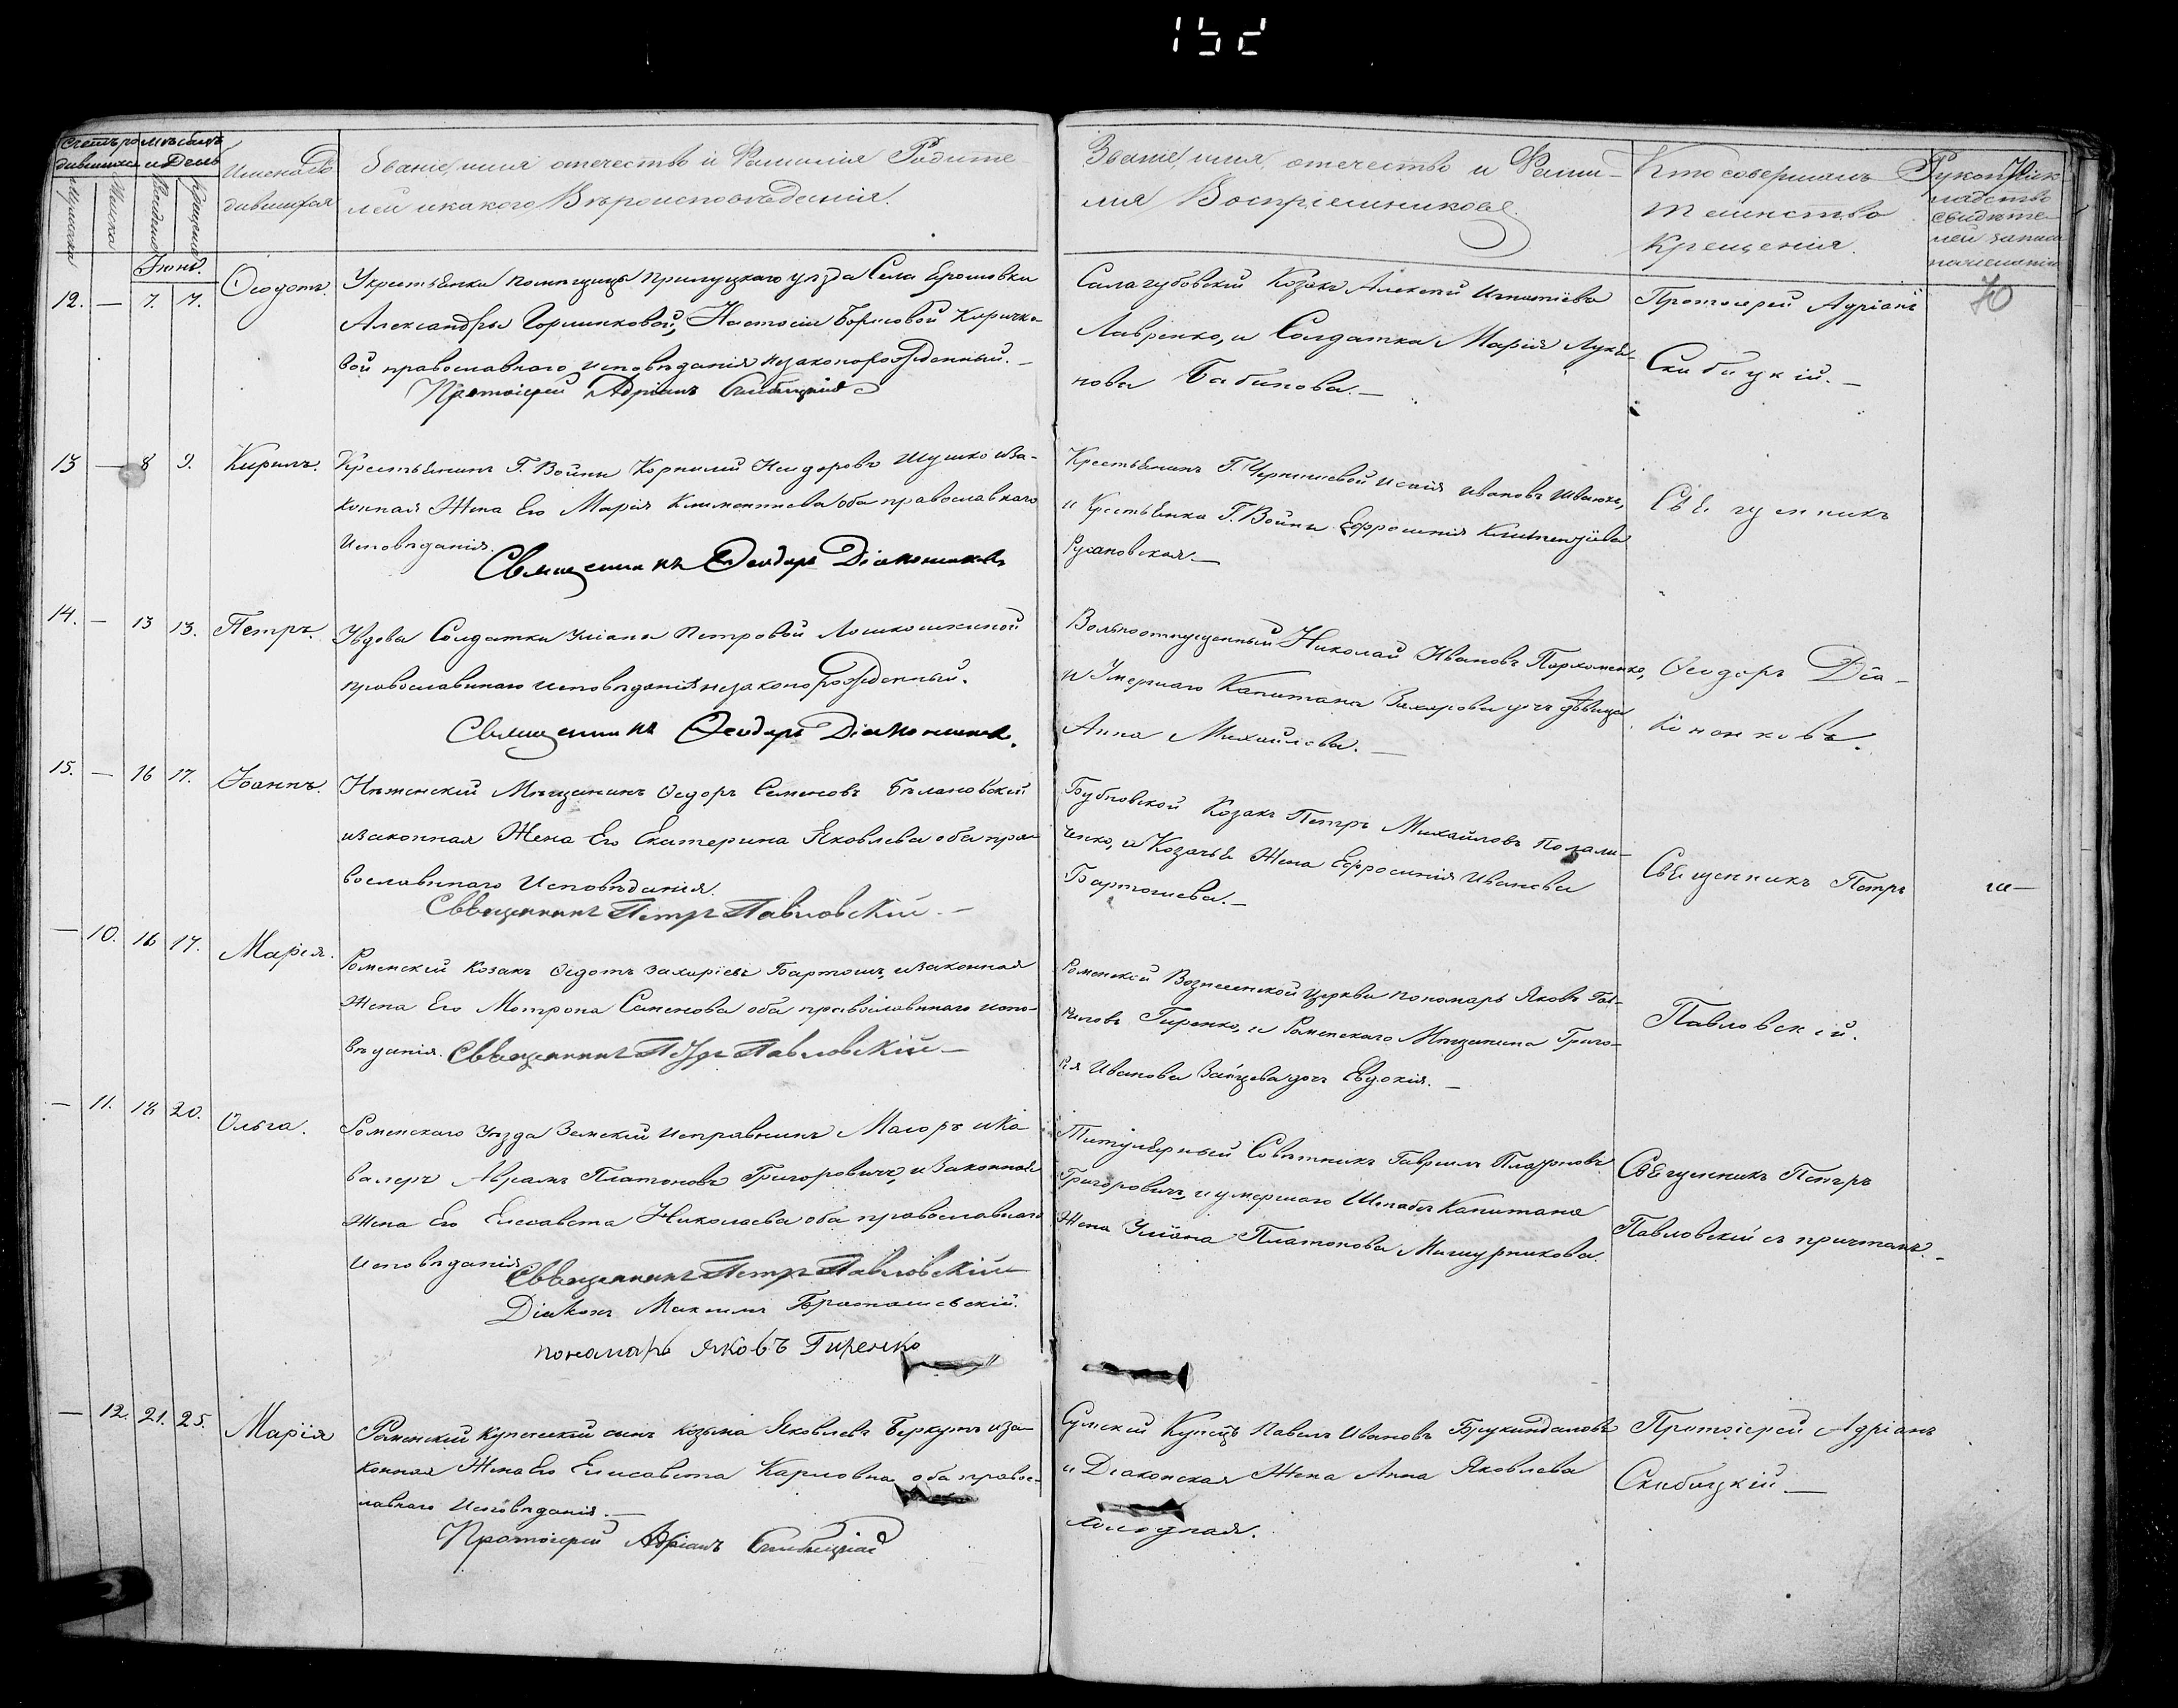 152
Счетъ ро мѣсяцъ
дившихся и День
Имена Ро
дившихся
Званіе, имя отечество и Фамилія Родите
лей и какого Вѣроисповѣданія.
Званіе, имя, отечество и Фами-
лія Воспріемниковъ.
Кто совершалъ
таинство
Крещенія.
Рукопрік
ладство
свидѣте-
лей записи
по желанію
70
Мужеска
Женска
Рожденія
Крещенія
Іюнь.
12. — 7. 7. Ѳеодотъ.
У крестьянки помѣщицы Прилуцкаго уѣзда Села Ярошовки
Александры Горленковой, Настасіи Борисовой Киричко-
вой православнаго исповѣданія незаконорожденный. —
Протоіерей Адріанъ Скибицкій
Салагубовскій Козакъ Алексѣй Игнатіевъ
Лавренко, и Солдатка Марія Лукья-
нова Бабикова. —
Протоіерей Адріанъ
Скибицкій. —
13 — 8 9. Кирилъ.
Крестьянинъ Г. Войны Корнилій Исидоровъ Шушко и за-
конная Жена Его Марія Климентиева оба православнаго
Исповѣданія.
Священникъ Ѳеодоръ Діаконенковъ
Крестьянинъ Г. Чернышевой Исаія Ивановъ Швачка,
и Крестьянка Г. Войны Ефросинія Климентіева
Русановская —
Священникъ
14. — 13 13. Петръ.
У вдовы Солдатки Уліаны Петровой Лошкошкиной
православнаго исповѣданія незаконорожденный.
Священникъ Ѳеодоръ Діаконенковъ.
Вольноотпущенный Николай Ивановъ Пархоменко,
и Умершаго Капитана Захарова дочь дѣвица
Анна Михайлова. —
Ѳеодоръ Діа-
коненковъ.
15. — 16 17. Іоаннъ.
Нѣженскій Мѣщанинъ Ѳедоръ Семеновъ Бѣлановскій
и законная Жена Его Екатерина Яковлева оба пра-
вославнаго Исповѣданія.
Священникъ Петръ Павловскій. —
Бубновской Козакъ Петръ Михайловъ
ченко, и Козачья Жена Ефросинія Иванова
Бартошева. —
Священникъ Петръ
— 10. 16 17. Марія.
Роменскій Козакъ Ѳедотъ Захаріевъ Бартошъ, и законная
Жена Его Мотрона Семенова оба православнаго испо-
вѣданія. Священникъ Петръ Павловскій —
Роменской Вознесенской Церкви пономарь Яковъ Гав-
риловъ Гиренко, и Роменскаго Мѣщанина Григо-
рія Иванова Зайцева дочь Евдокія. —
Павловскій.
— 11. 18 20. Ольга.
Роменскаго Уѣзда Земскій Исправникъ Маіоръ и Ка
валеръ Абрамъ Платоновъ Григоровичъ, и Законная
Жена Его Елисавета Николаева оба православнаго
Исповѣданія
Священникъ Петръ Павловскій
Діаконъ Максимъ
пономарь Яковъ Гиренко
Титулярный Совѣтникъ Гавріилъ Платоновъ
Григоровичъ, и умершаго Штабсъ Капитана
Жена Уліана Платонова Мишурникова.
Священникъ Петръ
Павловскій съ причтомъ. —
— 12. 21. 25. Марія
Роменскій Купеческій сынъ Козьма Яковлевъ Беркутъ и за-
конная Жена Его Елисавета Карповна оба правос-
лавнаго Исповѣданія. —
Протоіерей Адріанъ Скибицкій
Сумскій Купецъ Павелъ Ивановъ
и Діаконская Жена Анна Яковлева
Холодная.
Протоіерей Адріанъ
Скибицкій. —